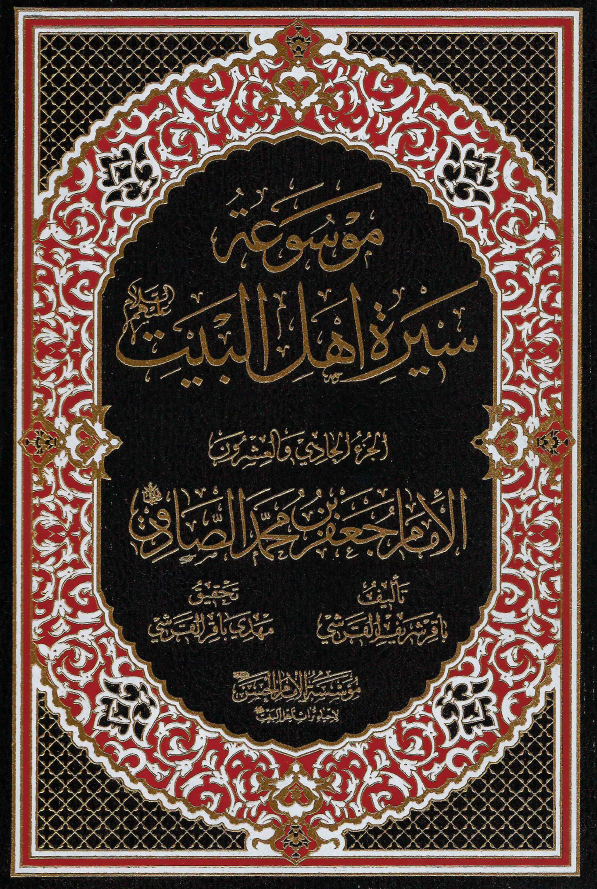 مَوْسُوعَةُ
سِيرَةِ اَهْلِ الْبَيْتِ عليهم السلام
الجُزءُ الحَادِي وَالعِشرُونَ
الإِمَامُ جَعْفَرِ بْنِ مُحَمَّدِ الصَّادِقِ
تَأْلِيفُ
تَحْقِيقُ
بَاقِر شَرِيف القَرَشِي
مَهْدِي بَاقِر القَرَشِي
مُؤَسَّسَةُ الإِمَامِ الحَسَنِ
لإحياء تراث أهل البيت